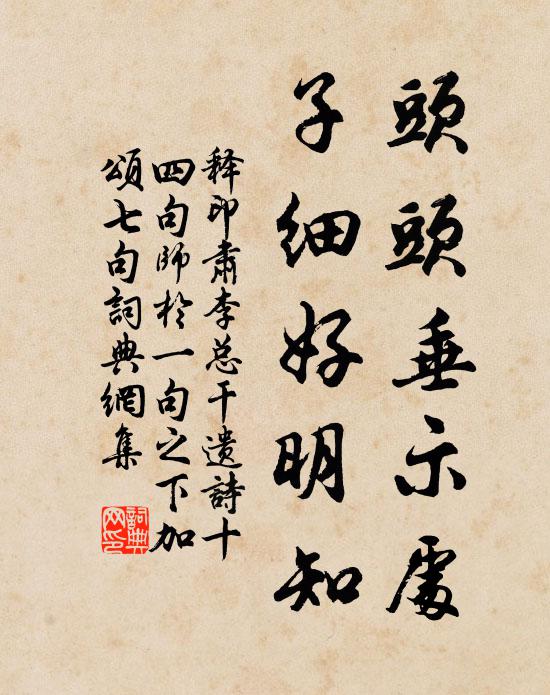 頭頭垂示處
子細好明知
释印肃李总干遗詩十
四句師於一句之下加
頌七句詞典網集
詞典
网印